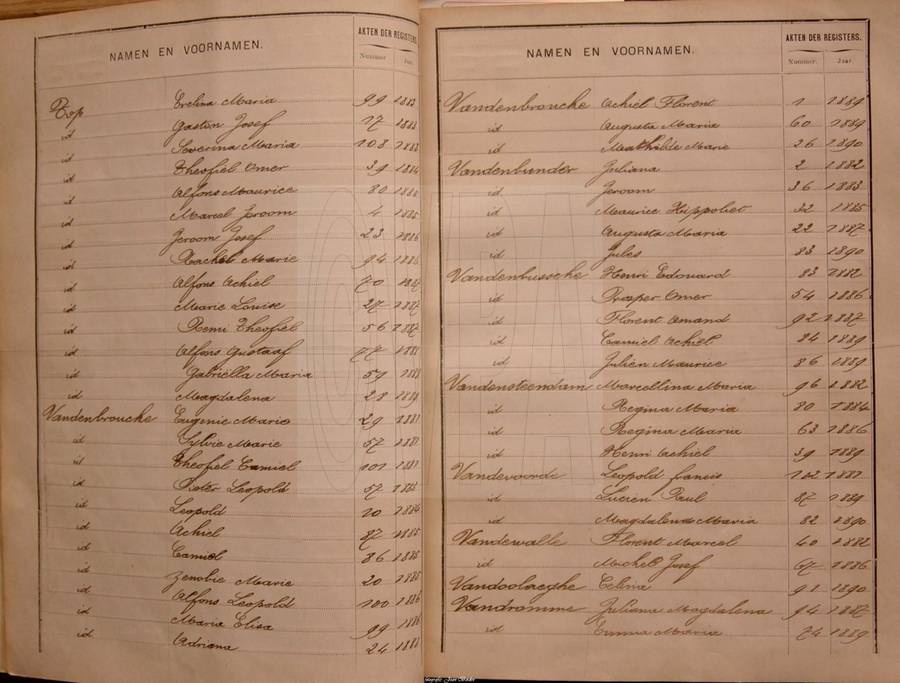 NAMEN EN VOORNAMEN. AKTEN DER REGISTERS.
Nummer Jaar.
Top Evelina Maria 99 1883
id Gaston Josef 17 1883
id Severina Maria 108 1883
id Theofiel Omer 39 1884
id Alfons Maurice 80 1885
id Marcel Jeroom 4 1885
id Jeroom Josef 23 1886
id Rachel Marie 94 1886
id Alfons Achiel 70 1887
id Marie Louise 27 1887
id Remi Theofiel 56 1887
id Alfons Gustaaf 77 1888
id Gabriella Maria 59 1888
id Magdalena 28 1889
Vandenbroucke Eugenie Marie 29 1881
id Sylvie Marie 57 1881
id Theofiel Camiel 101 1881
id Pieter Leopold 57 1883
id Leopold 10 1884
id Achiel 87 1885
id Camiel 86 1885
id Zenobie Marie 20 1885
id Alfons Leopold 100 1886
id Maria Elisa 99 1886
id Adriana 24 1888
NAMEN EN VOORNAMEN. AKTEN DER REGISTERS.
Nummer. Jaar.
Vandenbroucke Achiel Florent 1 1889
id Augusta Maria 60 1889
id Mathilde Marie 26 1890
Vandenbunder Juliana 2 1882
id Jeroom 36 1883
id Maurice Hippoliet 32 1885
id Augusta Maria 22 1887
id Jules 83 1890
Vandenbussche Henri Edouard 83 1882
id Prosper Omer 54 1886
id Florent Amand 92 1887
id Camiel Achiel 84 1889
id Julien Maurice 86 1889
Vandensteendam Marcellina Maria 96 1882
id Regina Maria 80 1884
id Regina Maria 63 1886
id Henri Achiel 39 1889
Vandevoorde Leopold francis 102 1881
id Lucien Paul 87 1889
id Magdalena Maria 82 1890
Vandewalle Florent Marcel 40 1882
id Michel Josef 67 1886
Vandoolaeghe Celina 91 1890
Vandromme Juliana Magdalena 94 1887
id Emma Maria 74 1889